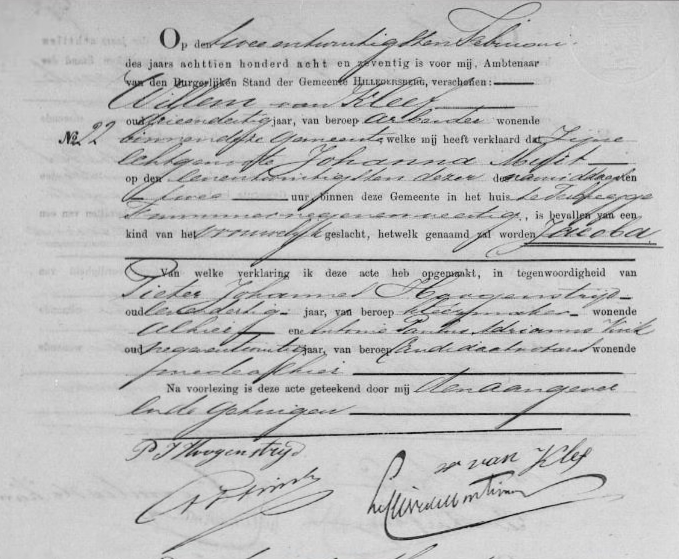 Op den tweeentwintigsten Februari
des jaars achttien honderd acht en zeventig is voor mij, Ambtenaar
van den Burgerlijken Stand der Gemeente HILLEGERSBERG, verschenen:
Willem van Kleef
oud drieendertig jaar, van beroep arbeider wonende
No. 22 binnen deze Gemeente, welke mij heeft verklaard dat Zijne
Echtgenoote Johanna
op den eenentwintigsten dezer des namiddags ten
twee uur, binnen deze Gemeente in het huis te
nummer negenenveertig, is bevallen van een
kind van het vrouwelijk geslacht, hetwelk genaamd zal worden Jacoba
Van welke verklaring ik deze acte heb opgemaakt, in tegenwoordigheid van
Pieter Johannes Hoogenstrijd
oud jaar, van beroep wonende
alhier en Antonie Adrianus
oud negenentwintig jaar, van beroep Candidaat notaris wonende
mede alhier
Na voorlezing is deze acte geteekend door mij den aangever
en de getuigen
P J Hoogenstrijd
W van Klef